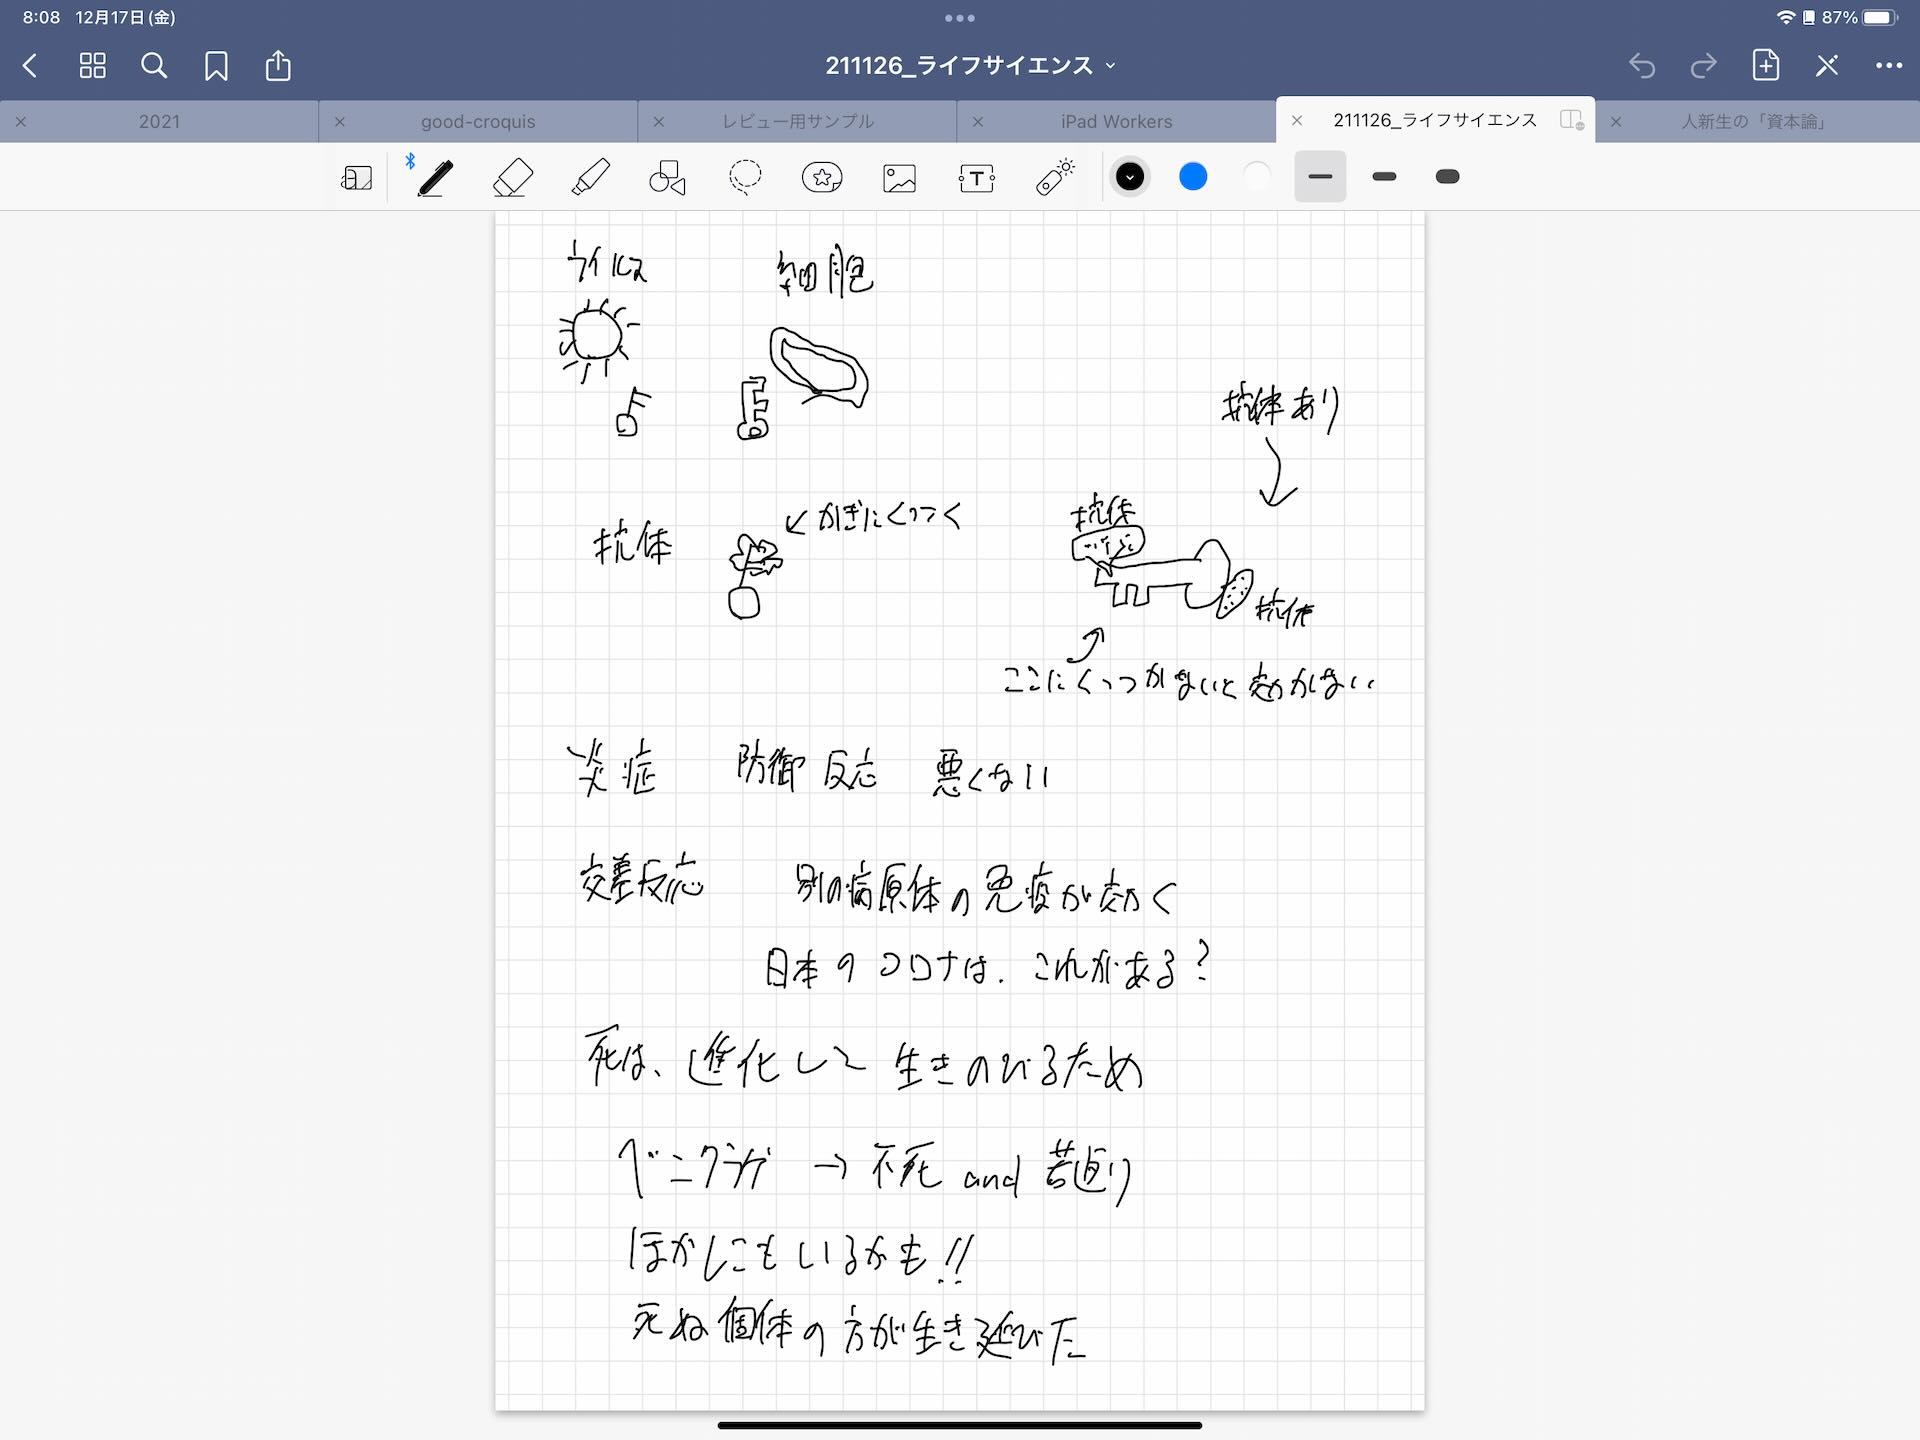 8:08 12月17日(金)
87%
211126_ライフサイエンス
2021
good-croquis
レビュー用サンプル
iPad Workers
211126_ライフサイエンス
人新生の「資本論」
ウイルス 細胞
抗体あり
抗体 ← かぎにくっつく
抗体
抗体
ここにくっつかないと効かない
炎症 防御反応 悪くない
交差反応 別の病原体の免疫が効く
日本のコロナは、これがある?
死は、進化して生きのびるため
ベニクラゲ → 不死 and 若返り
ほかにもいるかも!!
死ぬ個体の方が生き延びた